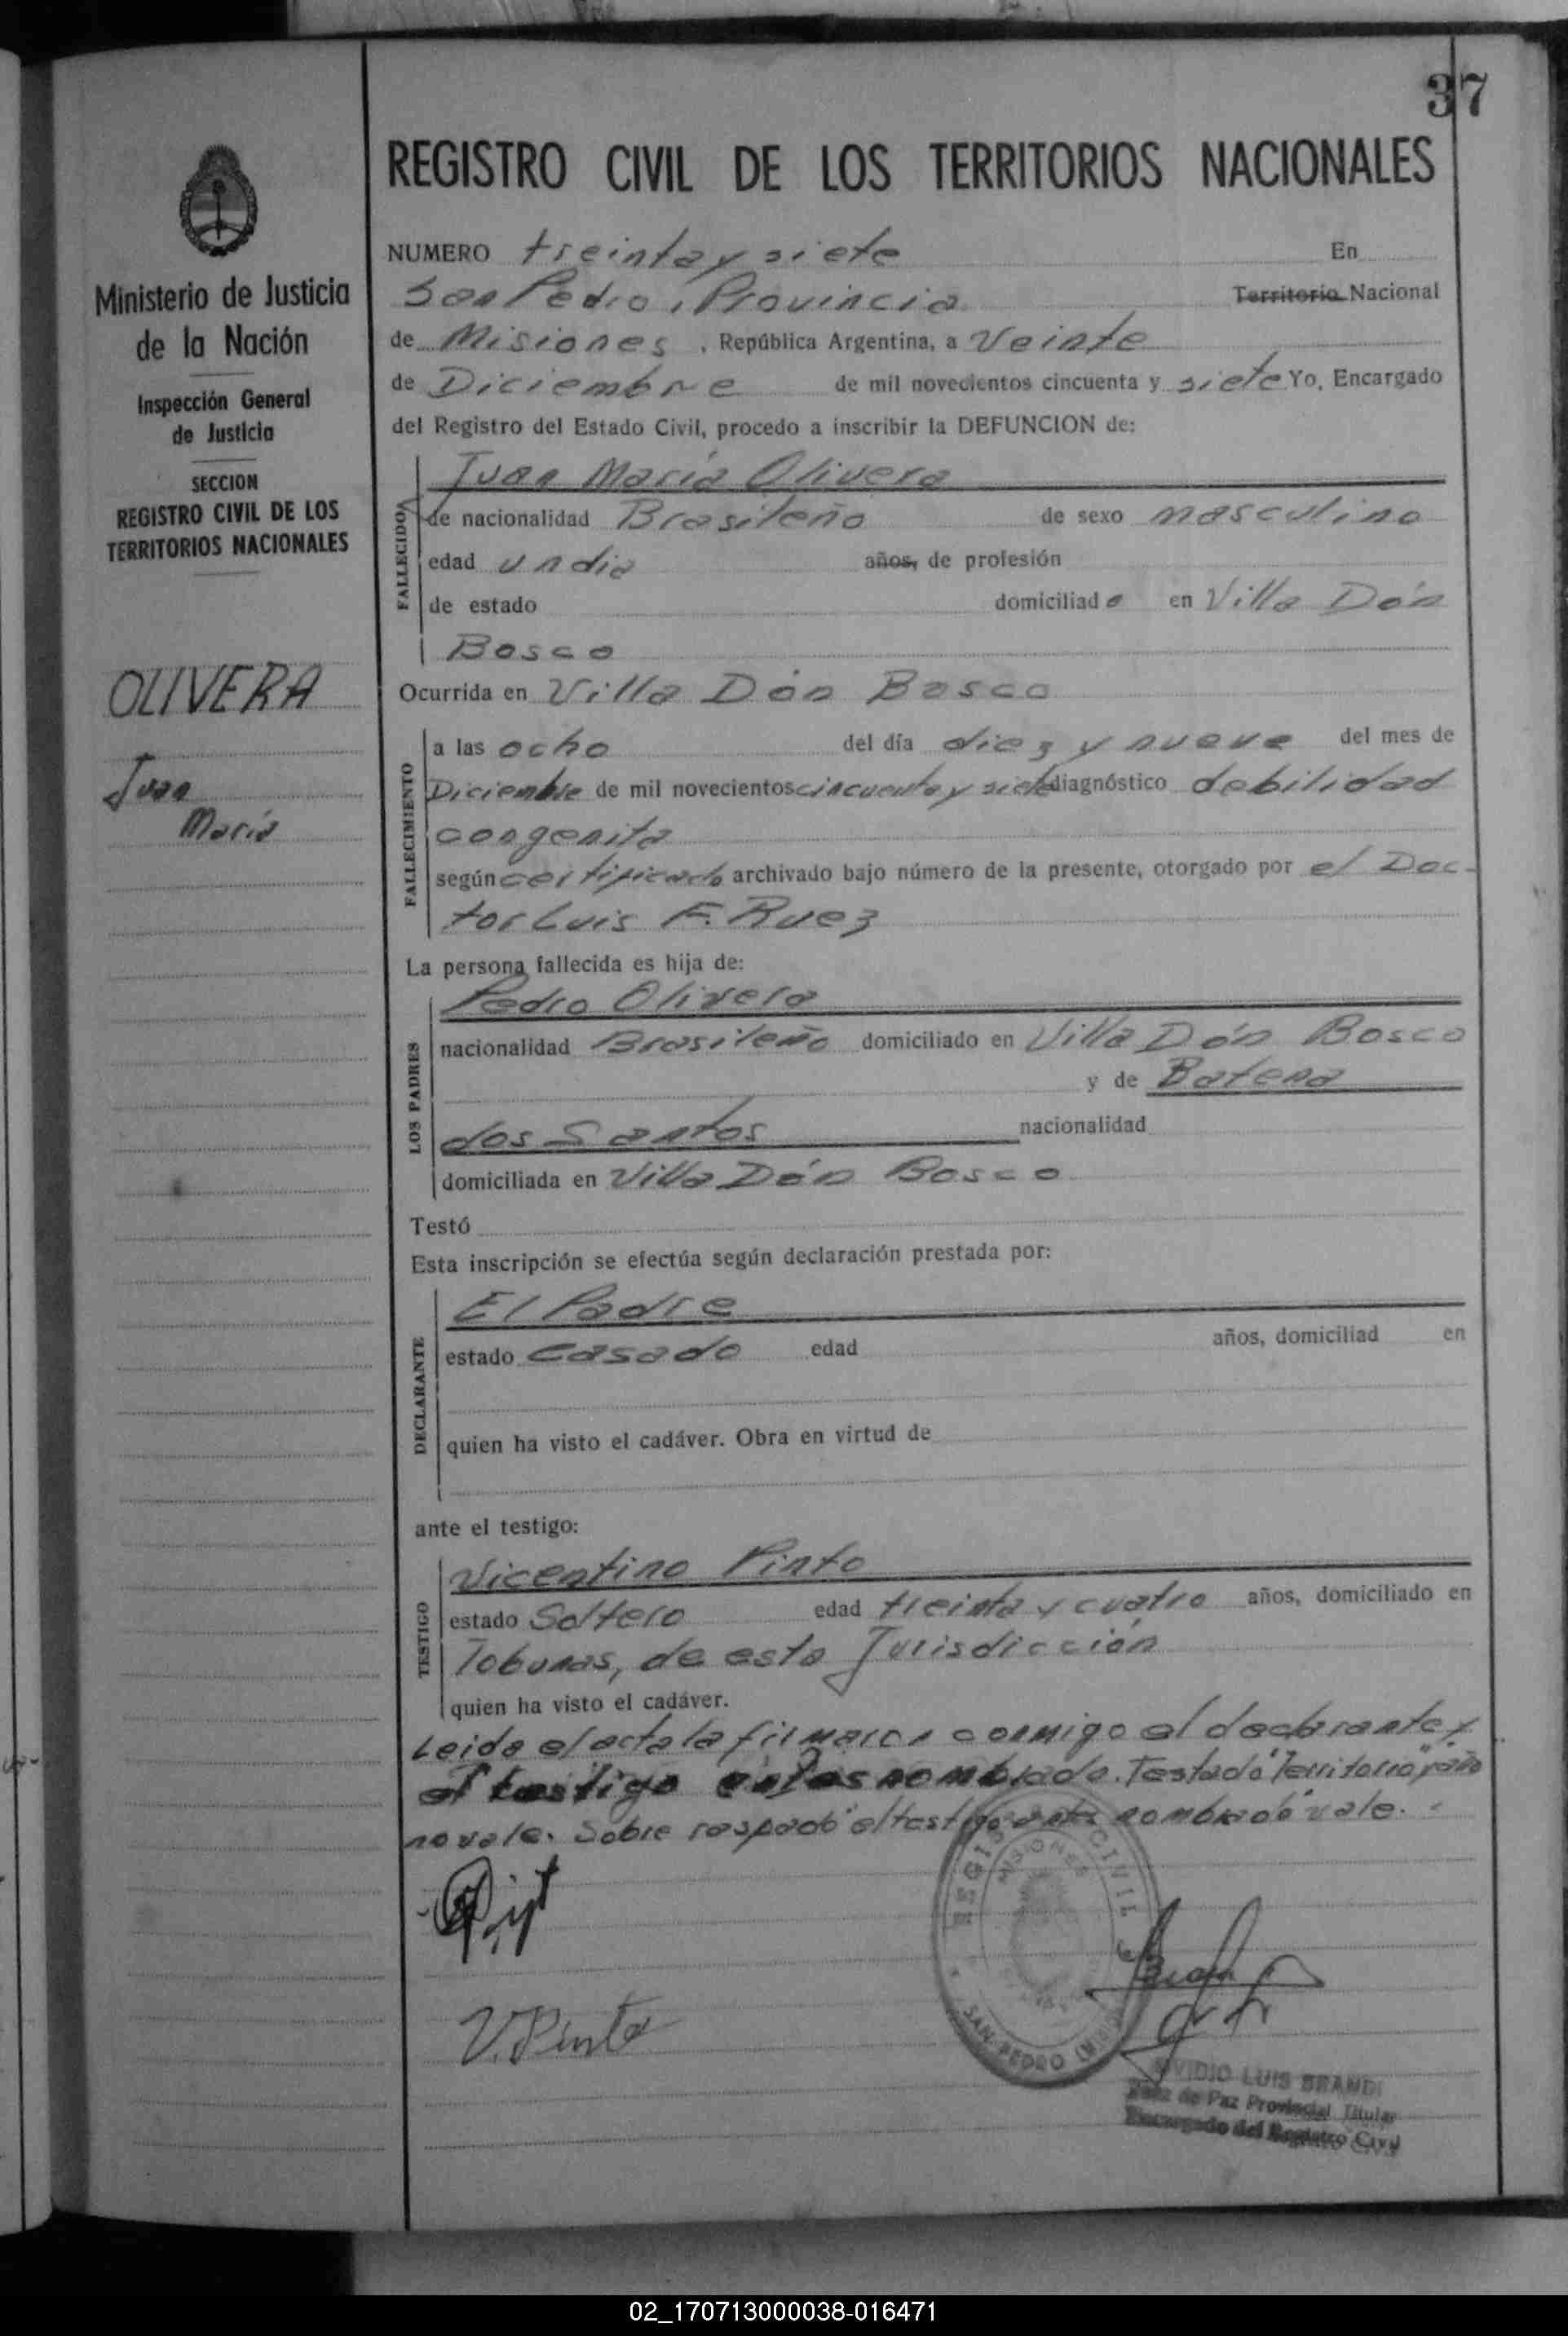 37
REGISTRO CIVIL DE LOS TERRITORIOS NACIONALES
Ministerio de Justicia
de la Nación
Inspección General
de Justicia
SECCION
REGISTRO CIVIL DE LOS
TERRITORIOS NACIONALES
OLIVERA
Juan
María
NUMERO treinta y siete En
San Pedro, Provincia Territorio Nacional
de Misiones, República Argentina, a Veinte
de Diciembre de mil novecientos cincuenta y siete Yo, Encargado
del Registro del Estado Civil, procedo a inscribir la DEFUNCION de:
FALLECIDO
Juan María Olivera
de nacionalidad Brasileño de sexo masculino
edad un dia años, de profesión
de estado domiciliado en Villa Dón
Bosco
Ocurrida en Villa Dón Bosco
FALLECIMIENTO
a las ocho del día diez y nueve del mes de
Diciembre de mil novecientos cincuenta y siete diagnóstico debilidad
congenita
según certificado archivado bajo número de la presente, otorgado por el Doc-
tor Luis F. Ruez
La persona fallecida es hija de:
LOS PADRES
Pedro Olivera
nacionalidad Brasileño domiciliado en Villa Dón Bosco
y de Batena
dos Santos nacionalidad
domiciliada en Villa Dón Bosco
Testó
Esta inscripción se efectúa según declaración prestada por:
DECLARANTE
El Padre
estado Casado edad años, domiciliad en
quien ha visto el cadáver. Obra en virtud de
ante el testigo:
TESTIGO
Vicentino Pinto
estado Soltero edad treinta y cuatro años, domiciliado en
Tobunas, de esta Jurisdicción
quien ha visto el cadáver.
Leida el acta la firmaron conmigo el declarante y
el testigo antes nombrado. Testado "Territorio" "años"
no vale. Sobre raspado "el testigo antes nombrado" vale.
V. Pinto
REGISTRO CIVIL
MISIONES
SAN PEDRO
OVIDIO LUIS BRANDI
Juez de Paz Provincial Titular
Encargado del Registro Civil
02_170713000038-016471